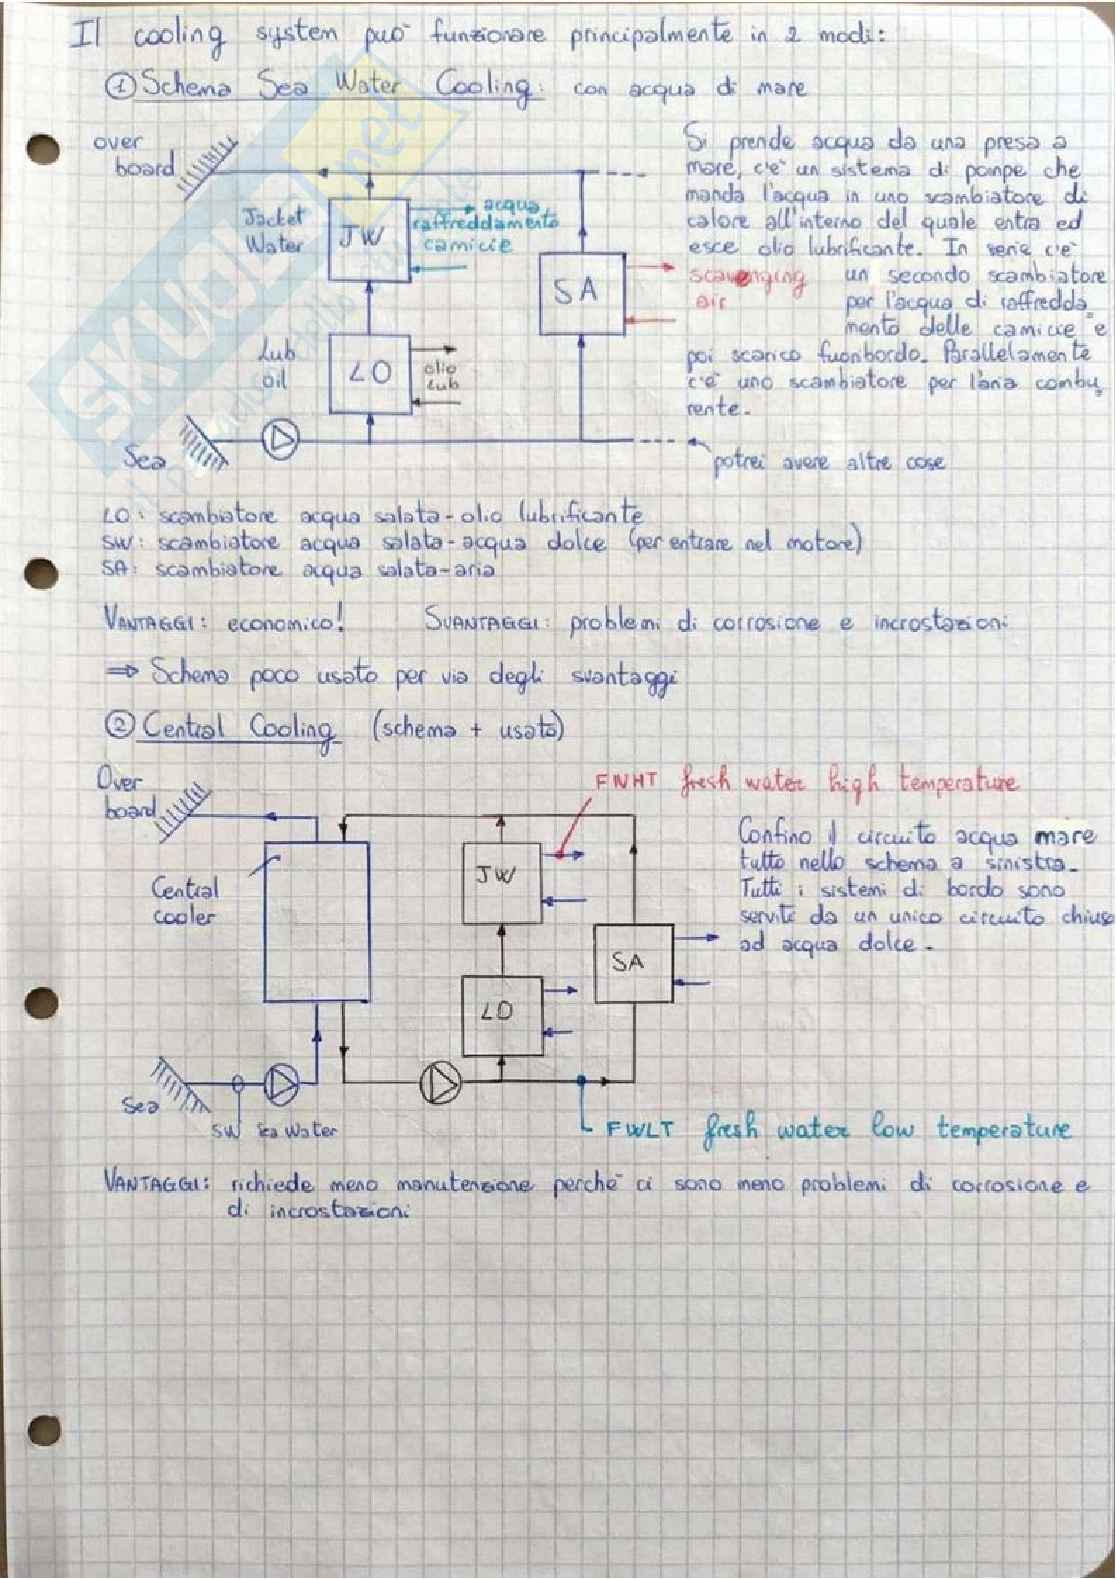 Il cooling system può funzionare principalmente in 2 modi:
① Schema Sea Water Cooling: con acqua di mare
over
board
Jacket
Water
JW
acqua
raffreddamento
camicie
SA
scavenging
air
Lub
oil
LO
olio
lub
Sea
Si prende acqua da una presa a
mare, c'è un sistema di pompe che
manda l'acqua in uno scambiatore di
calore all'interno del quale entra ed
esce olio lubrificante. In serie c'è
un secondo scambiatore
per l'acqua di raffredda
mento delle camicie e
poi scarico fuoribordo. Parallelamente
c'è uno scambiatore per l'aria combu
rente.
potrei avere altre cose
LO: scambiatore acqua salata-olio lubrificante
SW: scambiatore acqua salata-acqua dolce (per entrare nel motore)
SA: scambiatore acqua salata-aria
VANTAGGI: economico! SVANTAGGI: problemi di corrosione e incrostazioni
⇒ Schema poco usato per via degli svantaggi
② Central Cooling (schema + usato)
Over
board
FWHT fresh water high temperature
Central
cooler
JW
LO
SA
Confino il circuito acqua mare
tutto nello schema a sinistra.
Tutti i sistemi di bordo sono
serviti da un unico circuito chiuso
ad acqua dolce.
Sea
SW Sea Water
FWLT fresh water low temperature
VANTAGGI: richiede meno manutenzione perché ci sono meno problemi di corrosione e
di incrostazioni
SKUOLA.net